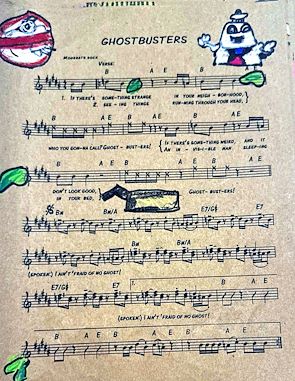 GHOSTBUSTERS
MODERATE ROCK
VERSE:
B A E B
1. IF THERE'S SOME-THING STRANGE IN YOUR NEIGH - BOR-HOOD,
2. SEE - ING THINGS RUN-NING THROUGH YOUR HEAD,
B A E B A E
WHO YOU GON-NA CALL? GHOST - BUST-ERS! IF THERE'S SOME-THING WEIRD, AND IT
AN IN - VIS-I-BLE MAN SLEEP-ING
B A E
DON'T LOOK GOOD, GHOST- BUST-ERS!
IN YOUR BED,
Bm Bm/A E7/G# E7
Bm Bm/A
(SPOKEN:) I AIN'T 'FRAID OF NO GHOST!
E7/G# E7 1. B A E
(SPOKEN:) I AIN'T 'FRAID OF NO GHOST!
B A E B A E B A E